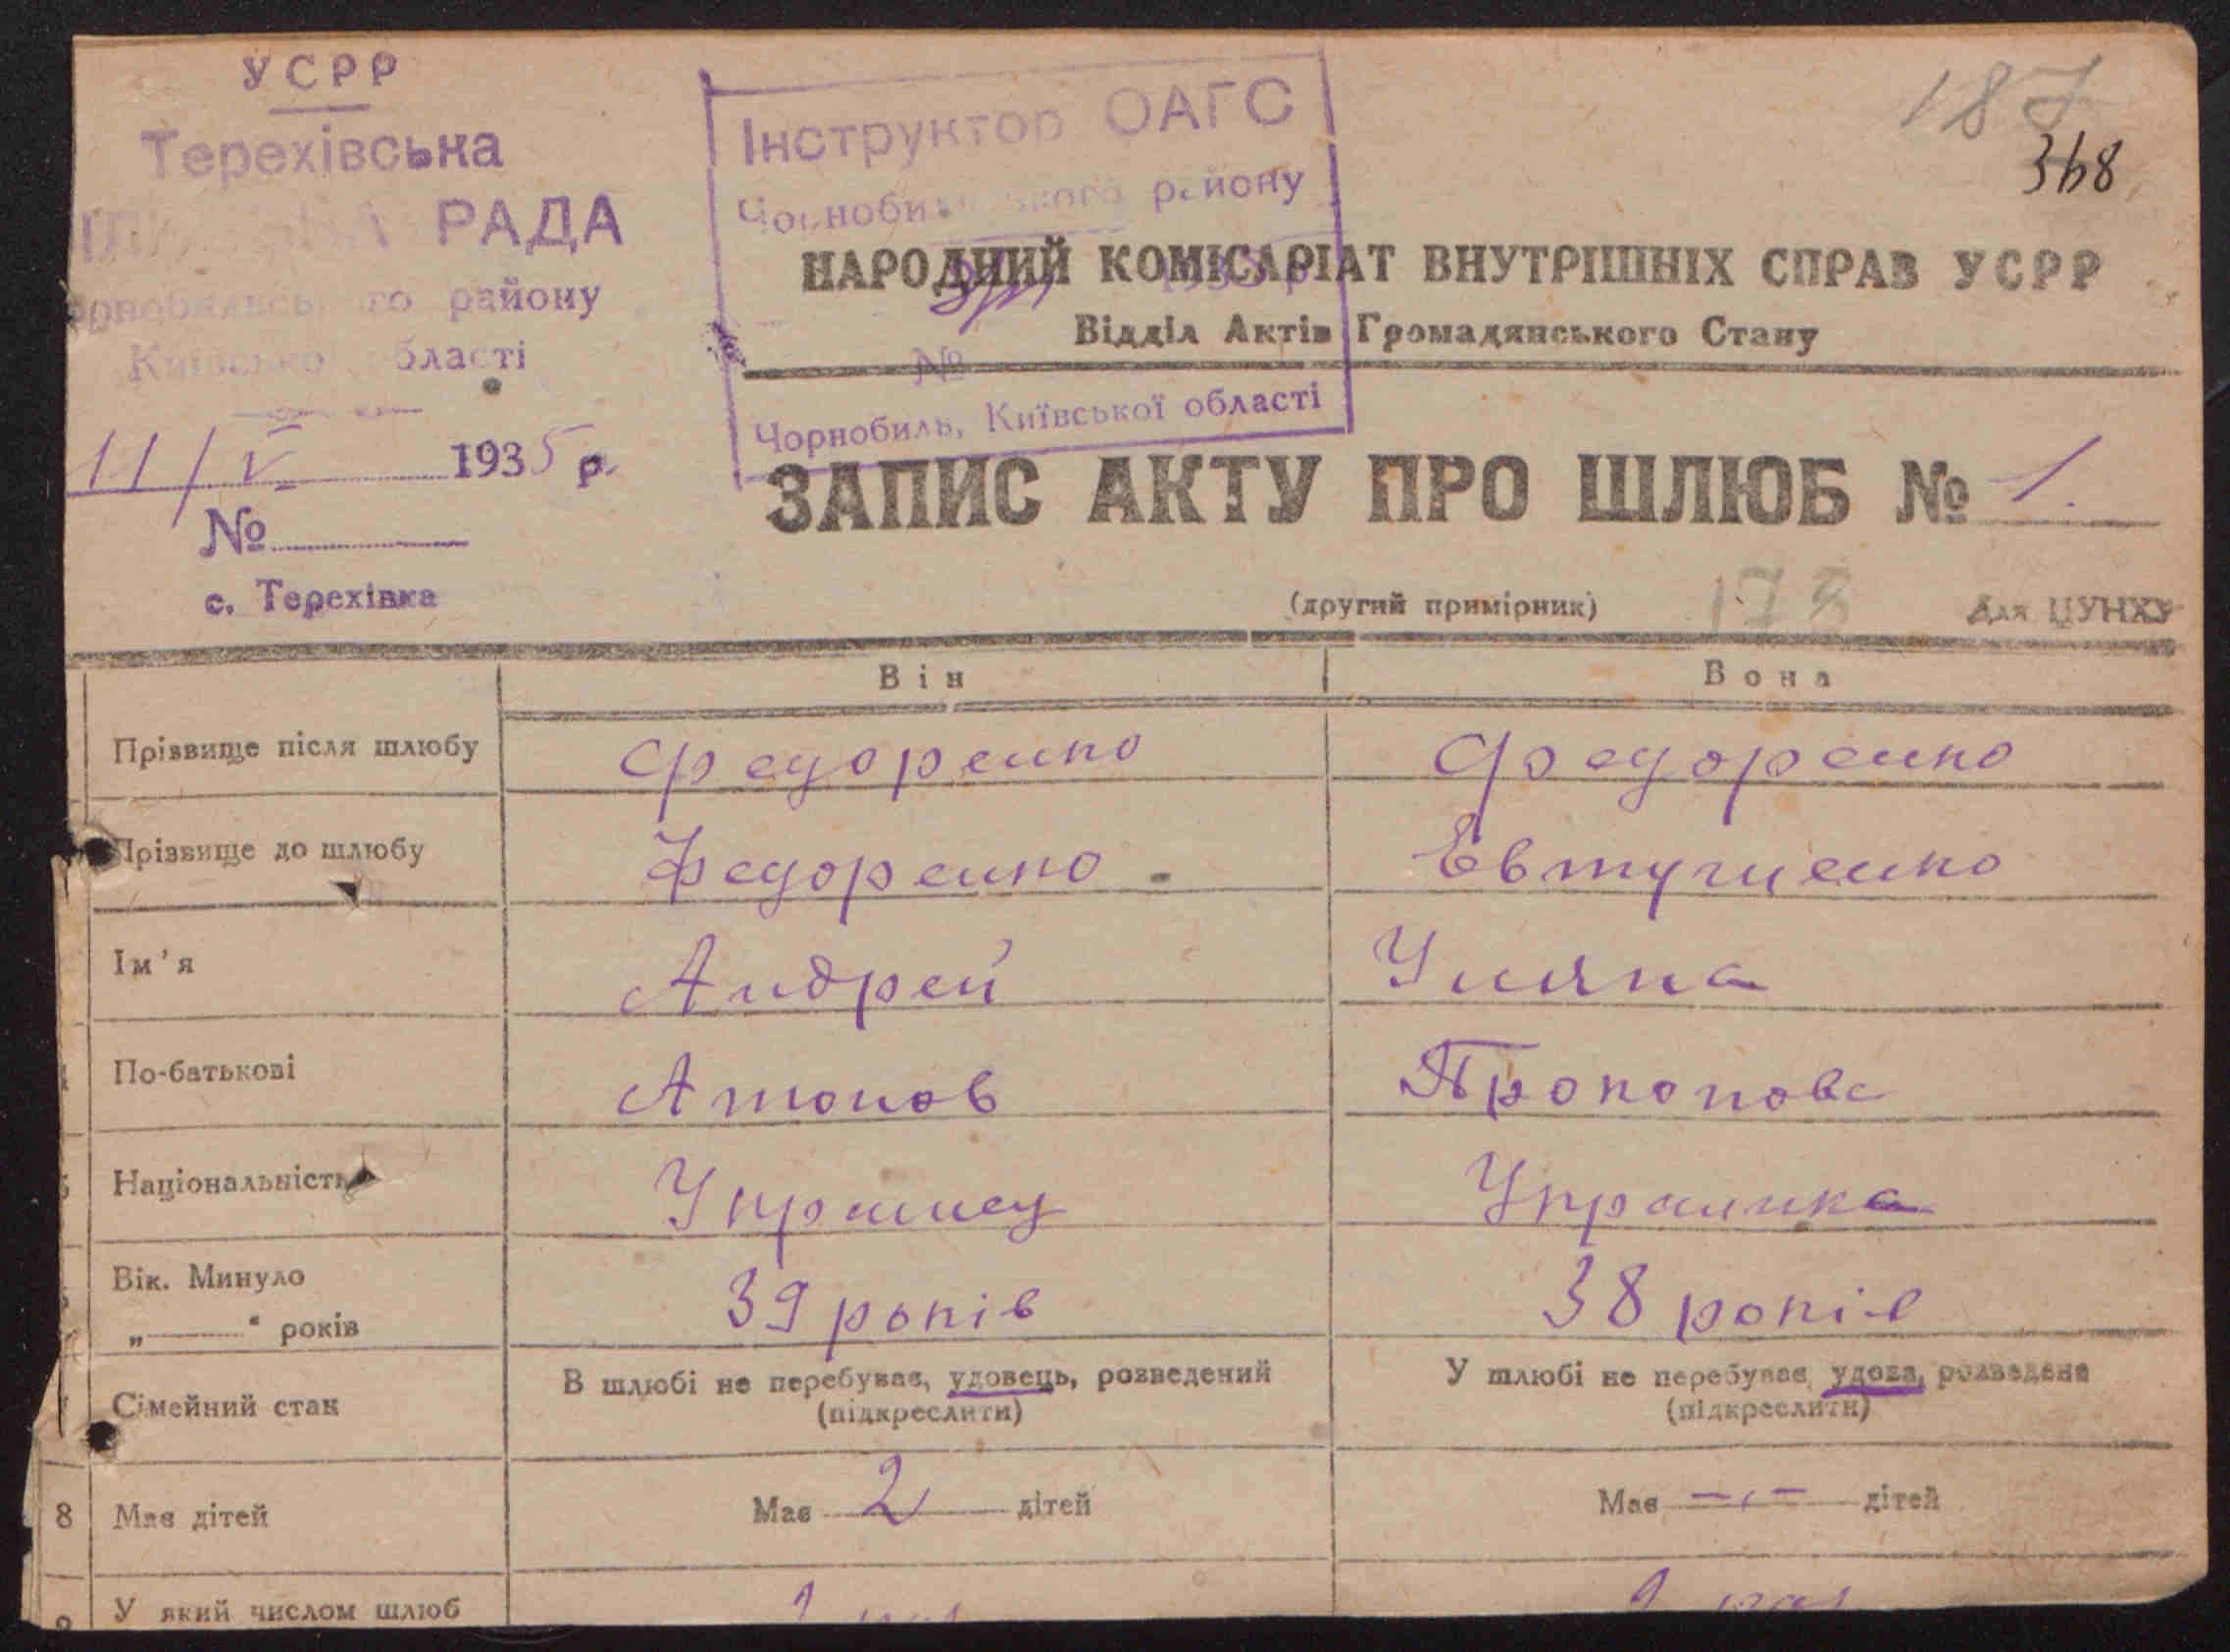 УСРР
Терехівська
РАДА
району
Київської області
11/V 1935 р.
№
с. Терехівка
Інструктор ОАГС
Чорнобильського району
№
Чорнобиль, Київської області
187
368
НАРОДНИЙ КОМІСАРІАТ ВНУТРІШНІХ СПРАВ УСРР
Відділ Актів Громадянського Стану
ЗАПИС АКТУ ПРО ШЛЮБ № 1.
(другий примірник) 178 Для ЦУНХУ
Він Вона
Прізвище після шлюбу Федоренко Федоренко
Прізвище до шлюбу Федоренко Евтущенко
Ім'я Андрей Уляна
По-батькові Атонов Прокопова
Національність Украинец Украинка
Вік. Минуло
„ “ років 39 років 38 років
Сімейний стан В шлюбі не перебував, удовець, розведений У шлюбі не перебував, удова, розведена
(підкреслити) (підкреслити)
8 Має дітей Має 2 дітей Має -,- дітей
У який числом шлюб